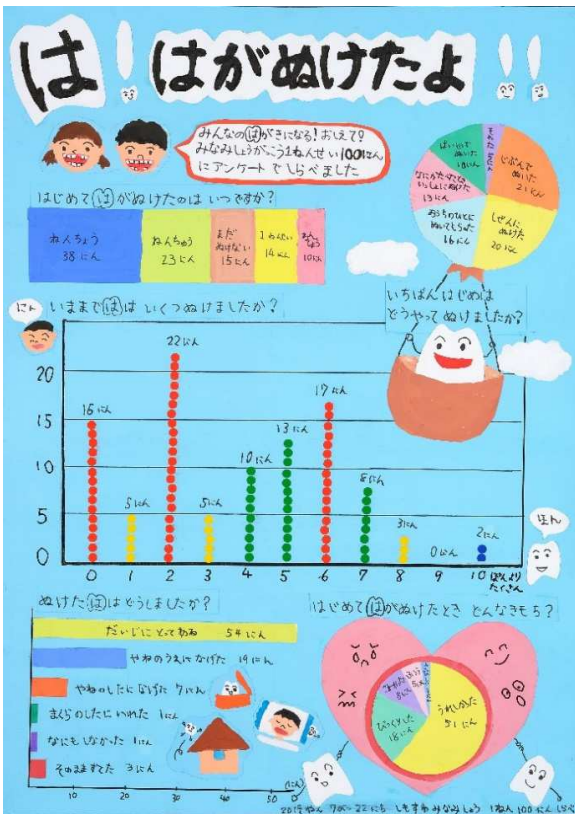 は！はがぬけたよ！！
みんなの(は)がきになる！おしえて？
みなみしょうがっこう1ねんせい100にん
にアンケートでしらべました
はじめて(は)がぬけたのは いつですか？
ねんちょう
38にん
ねんちゅう
23にん
まだ
ぬけない
15にん
1ねんせい
14にん
10にん
じぶんで
ぬいた
21にん
しぜんに
ぬけた
20にん
おうちのひとに
ぬいてもらった
16にん
いっしょにぬけた
13にん
ぬいた
いちばんはじめは
どうやってぬけましたか？
いままで(は)は いくつぬけましたか？
にん
20
15
10
5
0
5にん
22にん
5にん
10にん
13にん
17にん
8にん
3にん
0にん
2にん
ほん
0 1 2 3 4 5 6 7 8 9 10
ぬけた(は)はどうしましたか？
だいじにとってある 54にん
やねのうえになげた 19にん
やねのしたになげた 7にん
まくらのしたにいれた 1にん
なにもしなかった 1にん
そのまますてた 3にん
0 10 20 30 40 50 (にん)
はじめて(は)がぬけたとき どんなきもち？
うれしかった
51にん
びっくりした
18にん